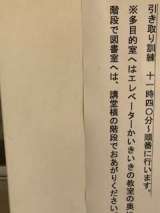 引き取り訓練　十一時四〇分～順番に行います。
※多目的室へはエレベーターかいきいきの教室の奥
階段で図書室へは、講堂横の階段でおあがりください